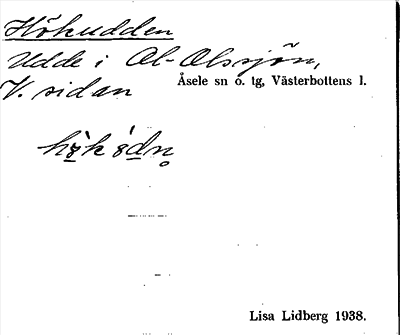 Hökudden
Udde i Al-Alssjön,
V. sidan
Åsele sn o. tg, Västerbottens l.
Lisa Lidberg 1938.